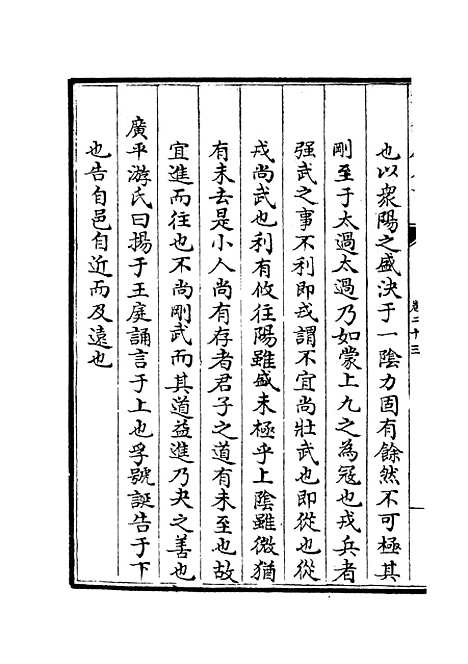 也以衆陽之盛決于一陰力固有餘然不可極其
剛至于太過太過乃如蒙上九之為寇也戎兵者
强武之事不利即戎謂不宜尚壯武也即從也從
戎尚武也利有攸往陽雖盛未極乎上陰雖微猶
有未去是小人尚有存者君子之道有未至也故
宜進而往也不尚剛武而其道益進乃夬之善也
廣平游氏曰揚于王庭誦言于上也孚號誕告于下
也告自邑自近而及遠也
卷二十三